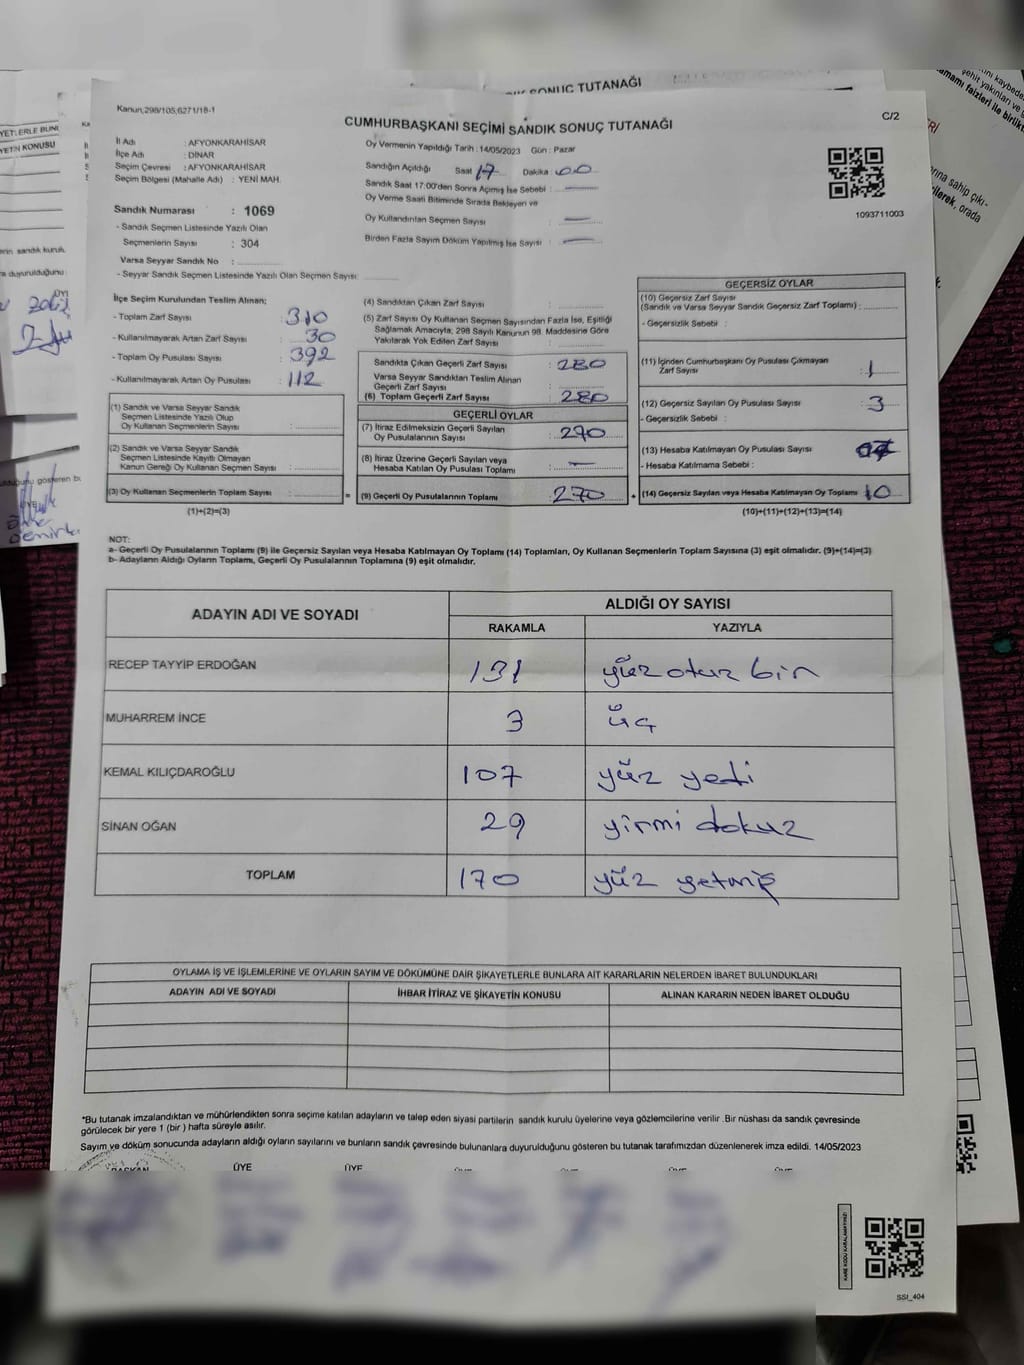 SONUÇ TUTANAĞI
Kanun;298/105,6271/18-1
C/2
CUMHURBAŞKANI SEÇİMİ SANDIK SONUÇ TUTANAĞI
İl Adı : AFYONKARAHİSAR
İlçe Adı : DİNAR
Seçim Çevresi : AFYONKARAHİSAR
Seçim Bölgesi (Mahalle Adı) : YENİ MAH.
Sandık Numarası : 1069
- Sandık Seçmen Listesinde Yazılı Olan
Seçmenlerin Sayısı : 304
Varsa Seyyar Sandık No :
- Seyyar Sandık Seçmen Listesinde Yazılı Olan Seçmen Sayısı:
Oy Vermenin Yapıldığı Tarih : 14/05/2023 Gün : Pazar
Sandığın Açıldığı Saat 17 Dakika 00
Sandık Saat 17:00'den Sonra Açılmış İse Sebebi : —
Oy Verme Saati Bitiminde Sırada Bekleyen ve
Oy Kullandırılan Seçmen Sayısı : —
Birden Fazla Sayım Döküm Yapılmış İse Sayısı : —
1093711003
İlçe Seçim Kurulundan Teslim Alınan;
- Toplam Zarf Sayısı : 310
- Kullanılmayarak Artan Zarf Sayısı : 30
- Toplam Oy Pusulası Sayısı : 392
- Kullanılmayarak Artan Oy Pusulası : 112
(1) Sandık ve Varsa Seyyar Sandık
Seçmen Listesinde Yazılı Olup
Oy Kullanan Seçmenlerin Sayısı :
(2) Sandık ve Varsa Seyyar Sandık
Seçmen Listesinde Kayıtlı Olmayan
Kanun Gereği Oy Kullanan Seçmen Sayısı :
(3) Oy Kullanan Seçmenlerin Toplam Sayısı :
(1)+(2)=(3)
(4) Sandıktan Çıkan Zarf Sayısı :
(5) Zarf Sayısı Oy Kullanan Seçmen Sayısından Fazla İse, Eşitliği
Sağlamak Amacıyla; 298 Sayılı Kanunun 98. Maddesine Göre
Yakılarak Yok Edilen Zarf Sayısı :
Sandıkta Çıkan Geçerli Zarf Sayısı : 280
Varsa Seyyar Sandıktan Teslim Alınan
Geçerli Zarf Sayısı :
(6) Toplam Geçerli Zarf Sayısı : 280
GEÇERLİ OYLAR
(7) İtiraz Edilmeksizin Geçerli Sayılan
Oy Pusulalarının Sayısı : 270
(8) İtiraz Üzerine Geçerli Sayılan veya
Hesaba Katılan Oy Pusulası Toplamı : —
(9) Geçerli Oy Pusulalarının Toplamı : 270
GEÇERSİZ OYLAR
(10) Geçersiz Zarf Sayısı
(Sandık ve Varsa Seyyar Sandık Geçersiz Zarf Toplamı) :
- Geçersizlik Sebebi :
(11) İçinden Cumhurbaşkanı Oy Pusulası Çıkmayan
Zarf Sayısı : 1
(12) Geçersiz Sayılan Oy Pusulası Sayısı : 3
- Geçersizlik Sebebi :
(13) Hesaba Katılmayan Oy Pusulası Sayısı
- Hesaba Katılmama Sebebi :
(14) Geçersiz Sayılan veya Hesaba Katılmayan Oy Toplamı 10
(10)+(11)+(12)+(13)=(14)
NOT:
a- Geçerli Oy Pusulalarının Toplamı (9) ile Geçersiz Sayılan veya Hesaba Katılmayan Oy Toplamı (14) Toplamları, Oy Kullanan Seçmenlerin Toplam Sayısına (3) eşit olmalıdır. (9)+(14)=(3)
b- Adayların Aldığı Oyların Toplamı, Geçerli Oy Pusulalarının Toplamına (9) eşit olmalıdır.
ADAYIN ADI VE SOYADI
ALDIĞI OY SAYISI
RAKAMLA YAZIYLA
RECEP TAYYİP ERDOĞAN 131 yüz otuz bin
MUHARREM İNCE 3 üç
KEMAL KILIÇDAROĞLU 107 yüz yedi
SİNAN OĞAN 29 yirmi dokuz
TOPLAM 170 yüz yetmiş
OYLAMA İŞ VE İŞLEMLERİNE VE OYLARIN SAYIM VE DÖKÜMÜNE DAİR ŞİKAYETLERLE BUNLARA AİT KARARLARIN NELERDEN İBARET BULUNDUKLARI
ADAYIN ADI VE SOYADI İHBAR İTİRAZ VE ŞİKAYETİN KONUSU ALINAN KARARIN NEDEN İBARET OLDUĞU
*Bu tutanak imzalandıktan ve mühürlendikten sonra seçime katılan adayların ve talep eden siyasi partilerin sandık kurulu üyelerine veya gözlemcilerine verilir. Bir nüshası da sandık çevresinde
görülecek bir yere 1 (bir) hafta süreyle asılır.
Sayım ve döküm sonucunda adayların aldığı oyların sayılarını ve bunların sandık çevresinde bulunanlara duyurulduğunu gösteren bu tutanak tarafımızdan düzenlenerek imza edildi. 14/05/2023
BAŞKAN ÜYE ÜYE ÜYE ÜYE ÜYE ÜYE
KARE KODU KARALAMAYINIZ!
SSI_404